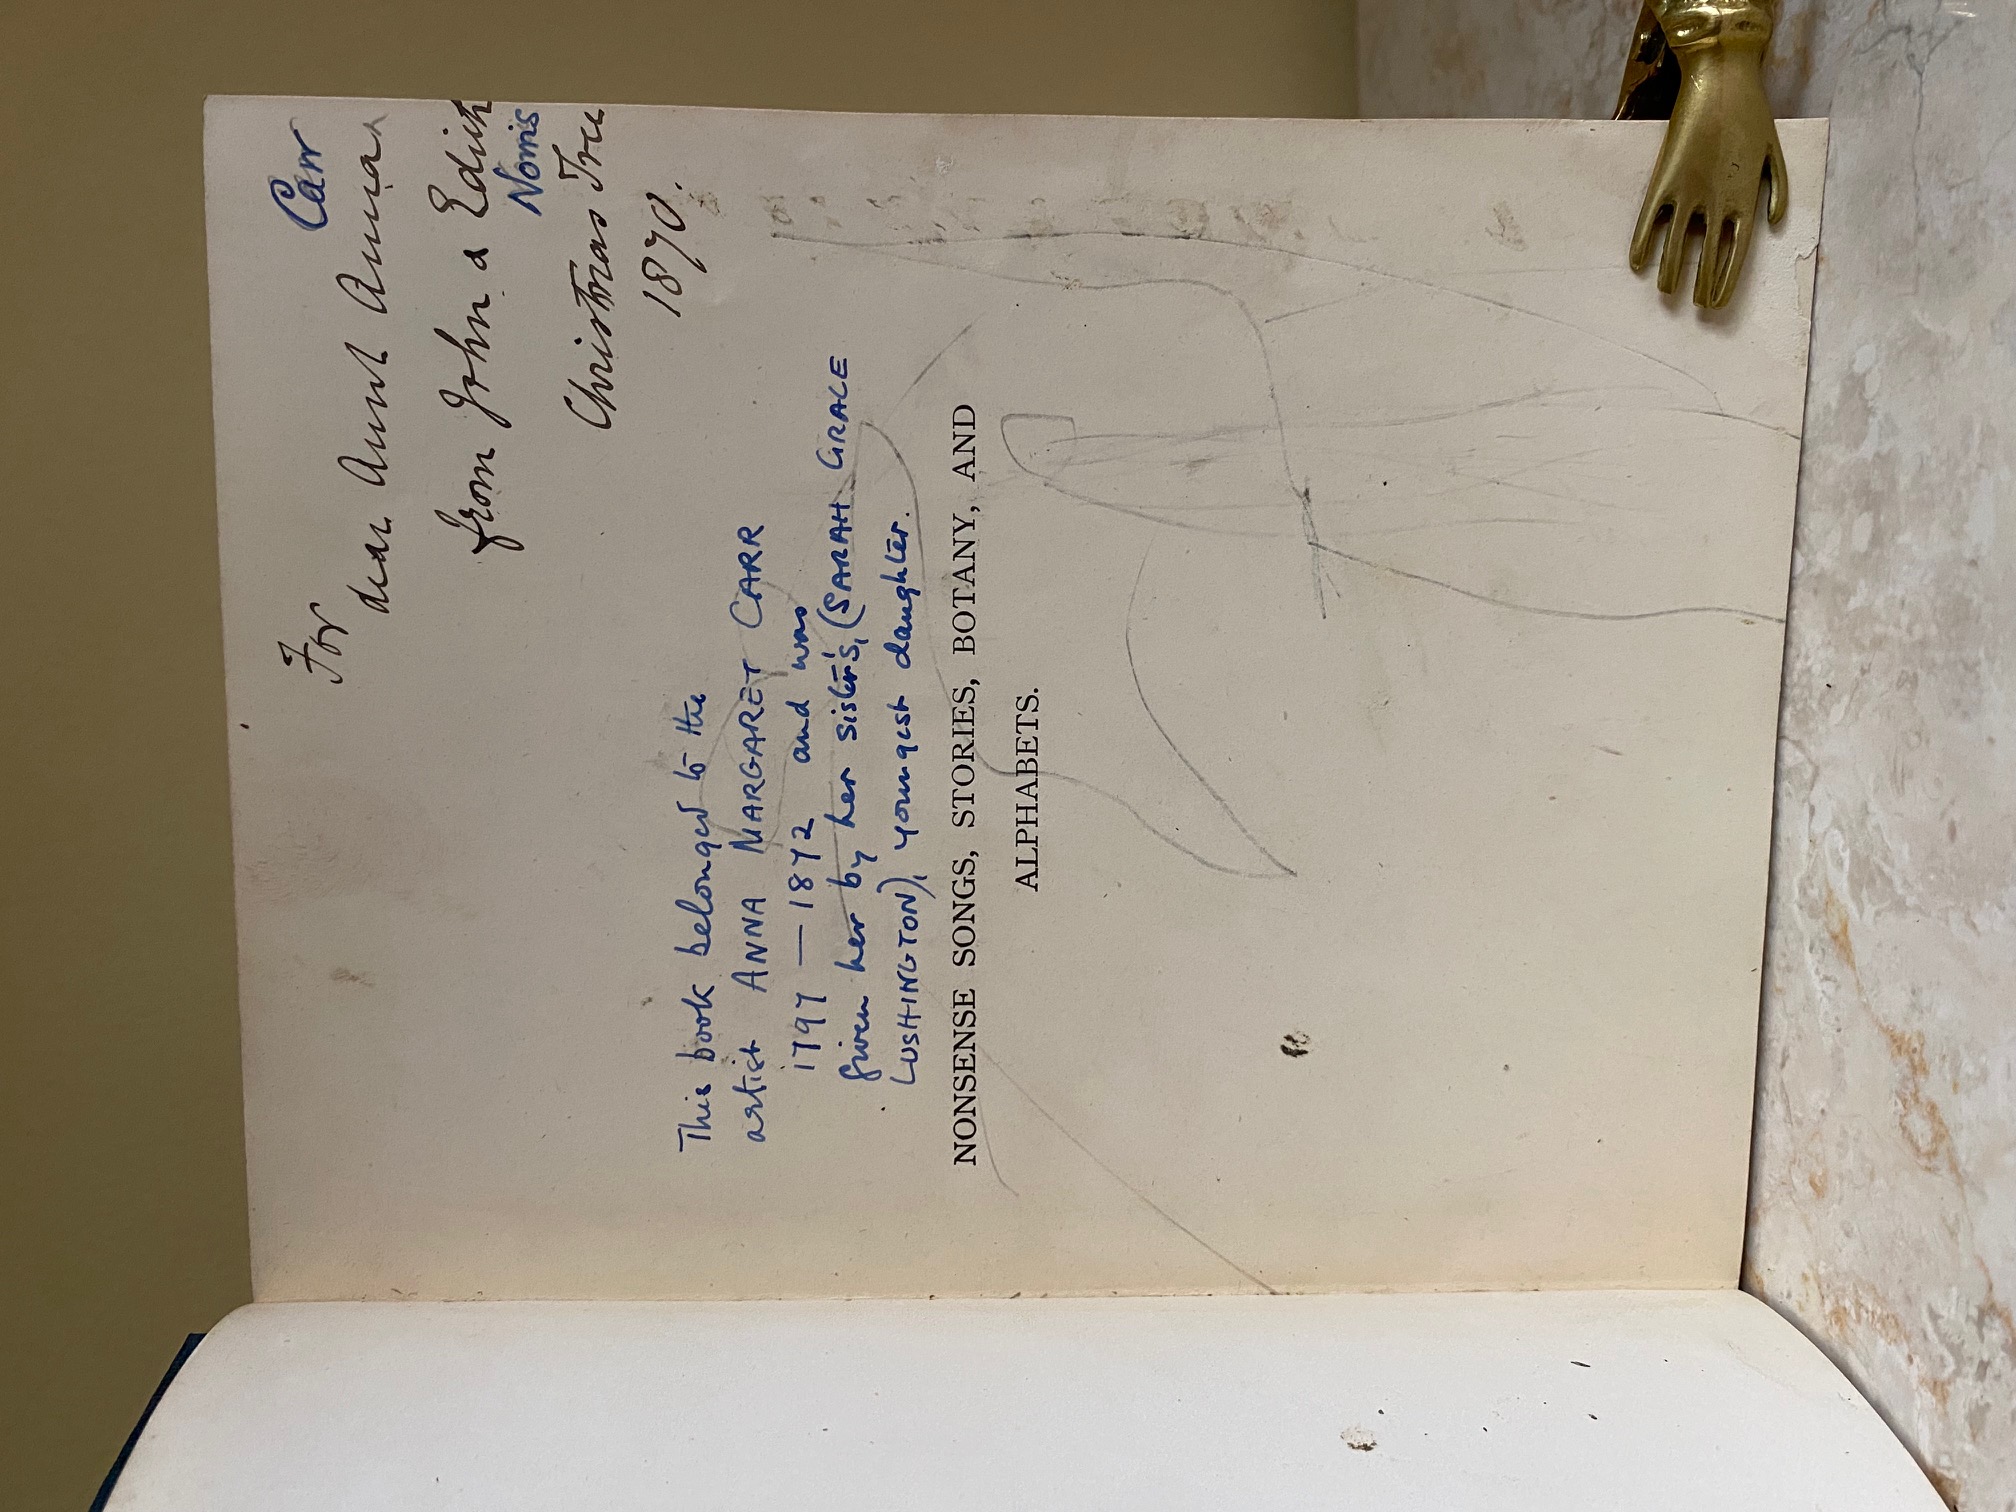 For
dear Aunt Anna
Carr
from John & Edith
Norris
Christmas Tree
1870.
This book belonged to the
artist ANNA MARGARET CARR
1797 — 1872 and was
given her by her sister's, (SARAH GRACE
LUSHINGTON), youngest daughter.
NONSENSE SONGS, STORIES, BOTANY, AND
ALPHABETS.